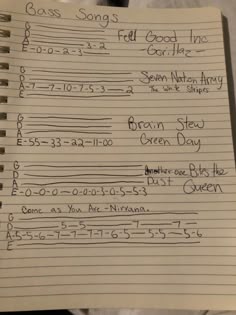 Bass Songs
G
D
A 3-2
E-0-0-2-3
Feel Good Inc
-Gorillaz-
G
D
A-7—7-10-7-5-3—2
E
Seven Nation Army
The White Stripes
G
D
A
E-55-33-22-11-00
Brain Stew
Green Day
G
D
A
E-0-0-0—0-0-0-3-0-5-5-3
Another one Bites the
Dust
Queen
Come as You Are -Nirvana.
G
D 5—5 7 7
A-5-5-6-7-7-7-6-5—5-5—5-6
E